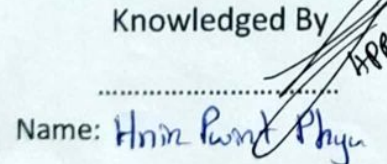 Knowledged By
APP
..............................
Name: Hnin Pwint Phyu